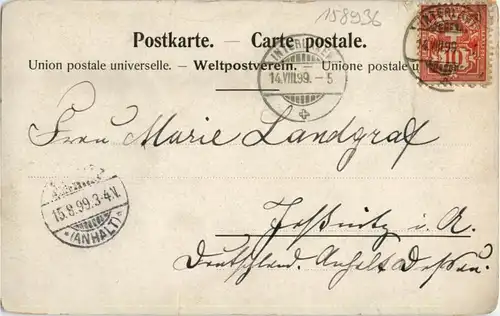 158936
Postkarte. — Carte postale.
Union postale universelle. — Weltpostverein. — Unione postale u
INTERLAKEN
14.VIII.99.-5
INTERLAKEN
14.VIII.99.
10
Frau Marie Landgraf
15.8.99.3-4.V.
*(ANHALT)*
Jeßnitz i. A.
Deutschland. Anhalt Dessau.